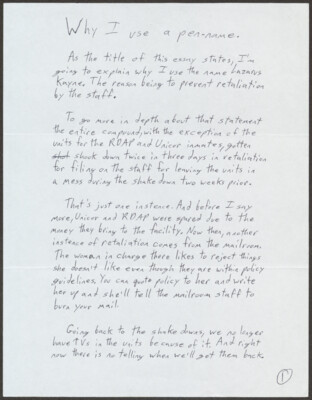 Why I use a pen-name.
As the title of this essay states, I'm
going to explain why I use the name Lazarus
Knyne. The reason being to prevent retaliation
by the staff.
To go more in depth about that statement
the entire compound, with the exception of the
units for the RDAP and Unicor inmates, gotten
shook down twice in three days in retaliation
for filing on the staff for leaving the units in
a mess during the shakedown two weeks prior.
That's just one instance. And before I say
more, Unicor and RDAP were spared due to the
money they bring to the facility. Now then, another
instance of retaliation comes from the mailroom.
The woman in charge there likes to reject things
she doesn't like even though they are within policy
guidelines. You can quote policy to her and write
her up and she'll tell the mailroom staff to
burn your mail.
Going back to the shake downs, we no longer
have TVs in the units because of it. And right
now there is no telling when we'll get them back.
1